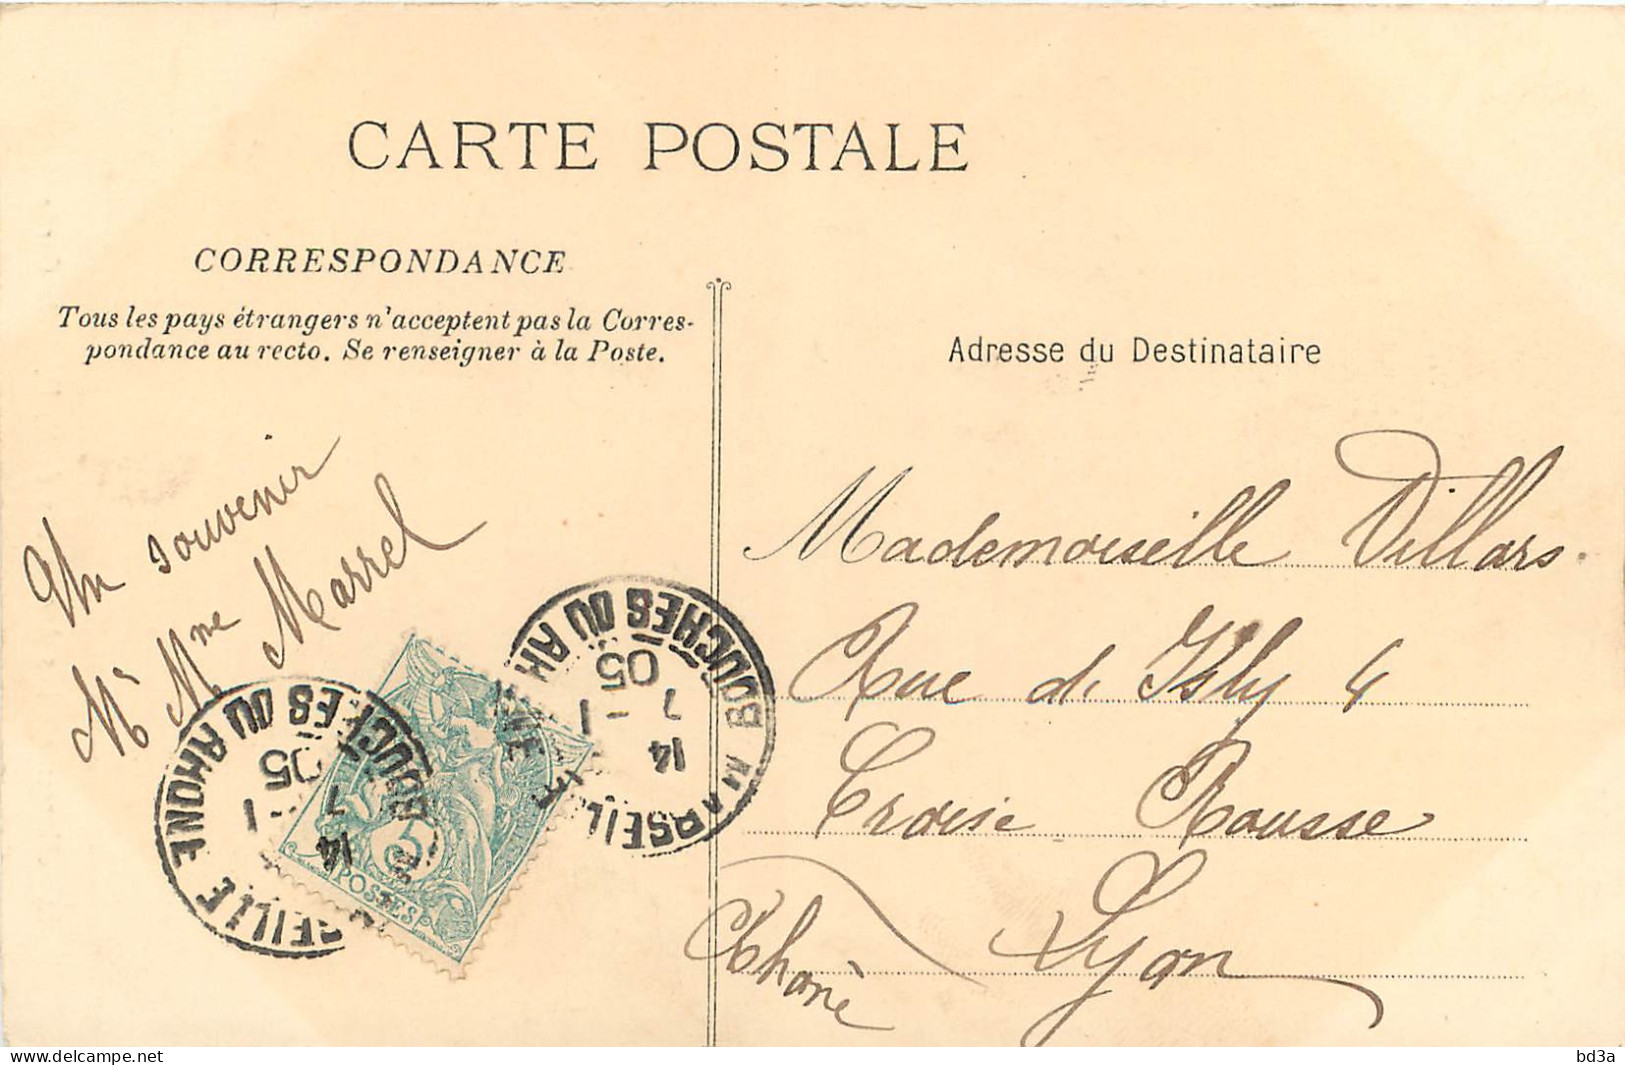 CARTE POSTALE
CORRESPONDANCE
Tous les pays étrangers n'acceptent pas la Corres-
pondance au recto. Se renseigner à la Poste.
Adresse du Destinataire
Un souvenir
Mr Mme Marrel
Mademoiselle Villars.
Rue de Isly 4
Croise Rousse
Lyon
Rhone
MARSEILLE BOUCHES DU RHONE
14
7 - 1
05
MARSEILLE BOUCHES DU RHONE
14
7 - 1
05
5
POSTES
delcampe.net
bd3a